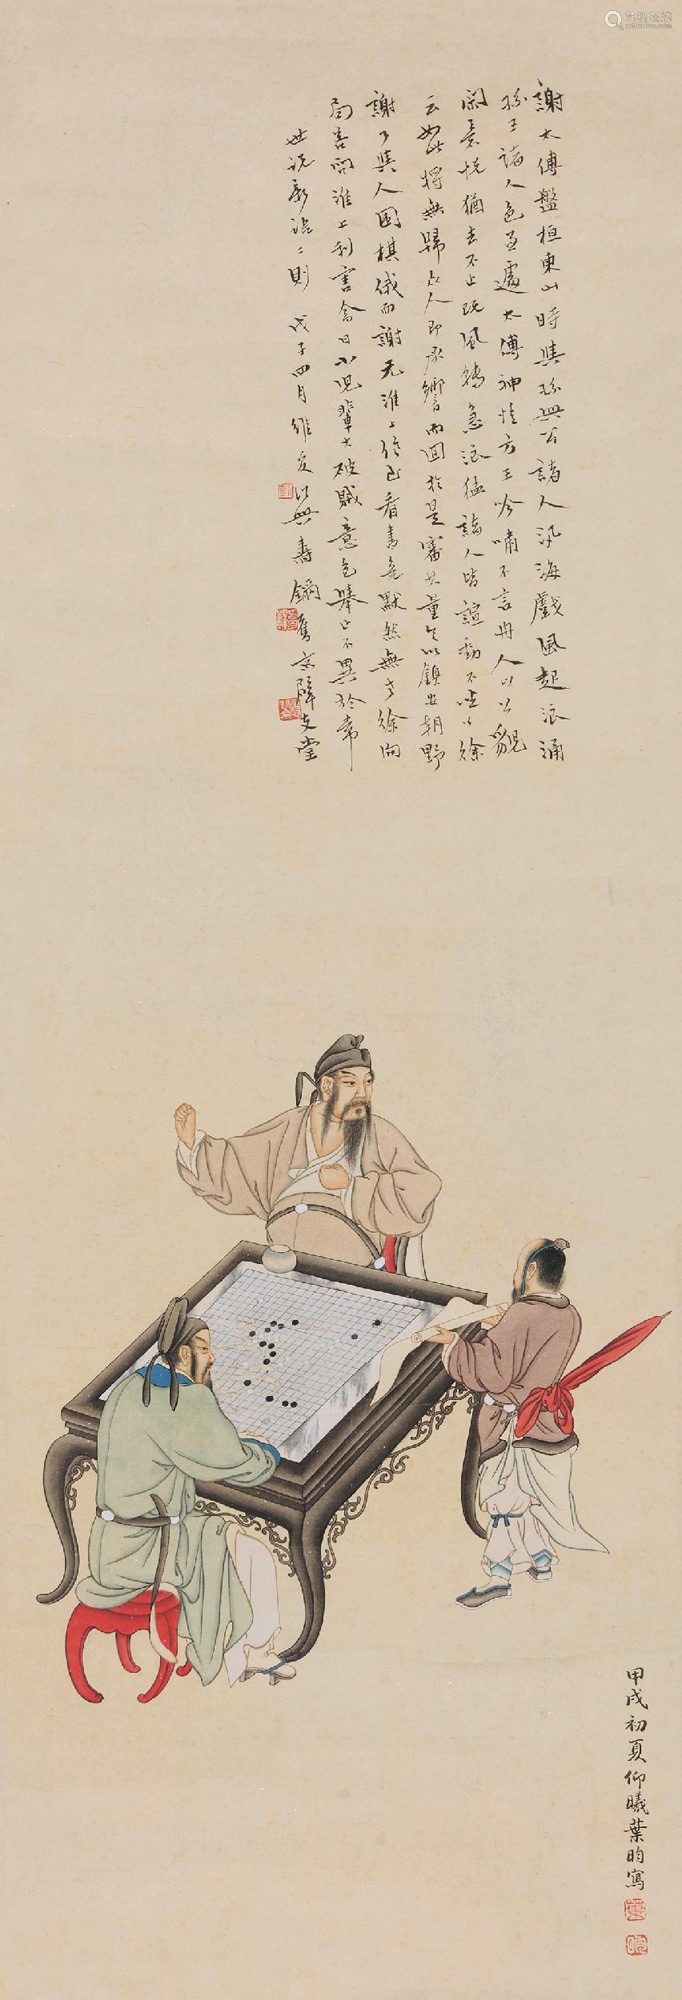 謝太傅盤桓東山時與孫興公諸人汎海戲風起浪涌
孫王諸人色並遽太傅神情方王吟嘯不言舟人以公貌
閑意悅猶去不止既風轉急浪猛諸人皆諠動不坐公徐
云如此將無歸众人即承響而回於是審其量足以鎮安朝野
謝公與人圍棋俄而謝玄淮上信至看書竟默然無言徐向
局客問淮上利害答曰小兒輩大破賊意色舉止不異於常
世說新語二則 戊子四月維
甲戌初夏仰曦葉昀寫